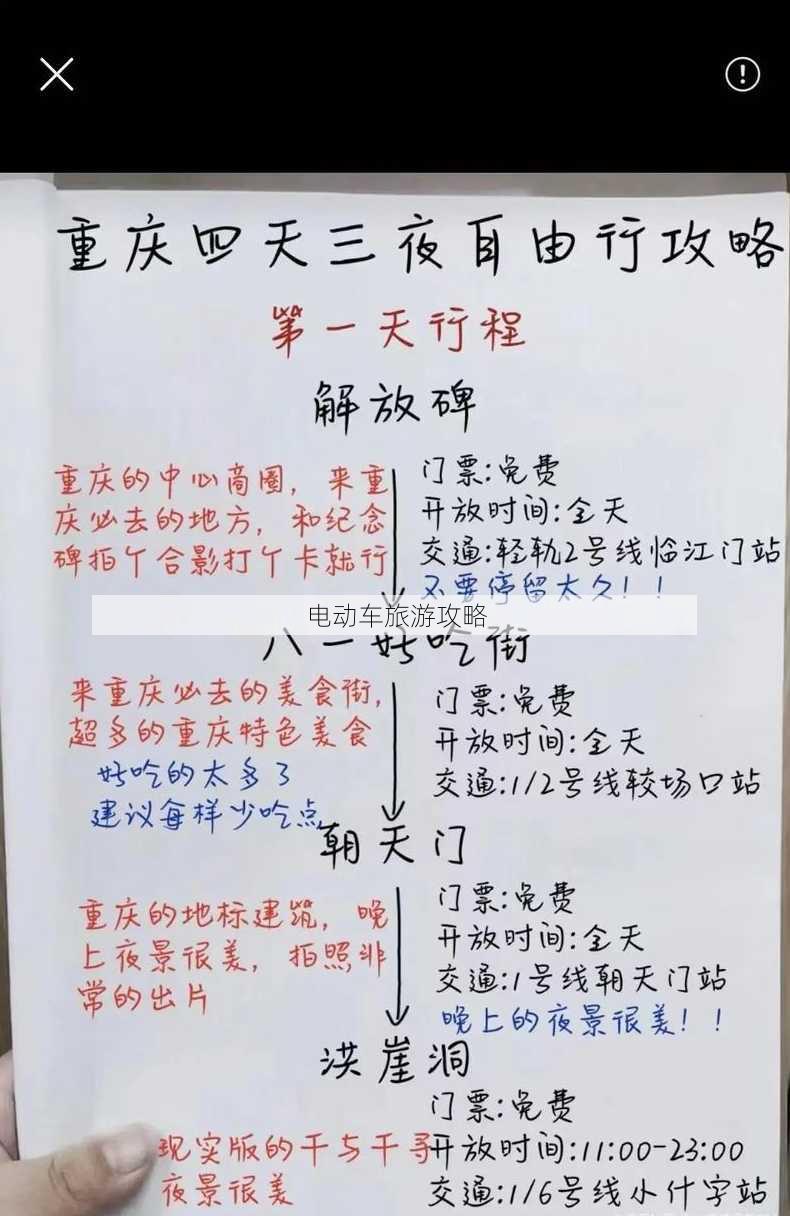 重庆四天三夜自由行攻略
第一天行程
解放碑
重庆的中心商圈，来重
庆必去的地方，和纪念
碑拍个合影打个卡就行
门票:免费
开放时间:全天
交通:轻轨2号线临江门站
不要停留太久！！
电动车旅游攻略
八一好吃街
来重庆必去的美食街，
超多的重庆特色美食
好吃的太多了
建议每样少吃点
门票:免费
开放时间:全天
交通:1/2号线较场口站
朝天门
重庆的地标建筑，晚
上夜景很美，拍照非
常的出片
门票:免费
开放时间:全天
交通:1号线朝天门站
晚上的夜景很美！！
洪崖洞
现实版的千与千寻
夜景很美
门票:免费
开放时间:11:00-23:00
交通:1/6号线小什字站